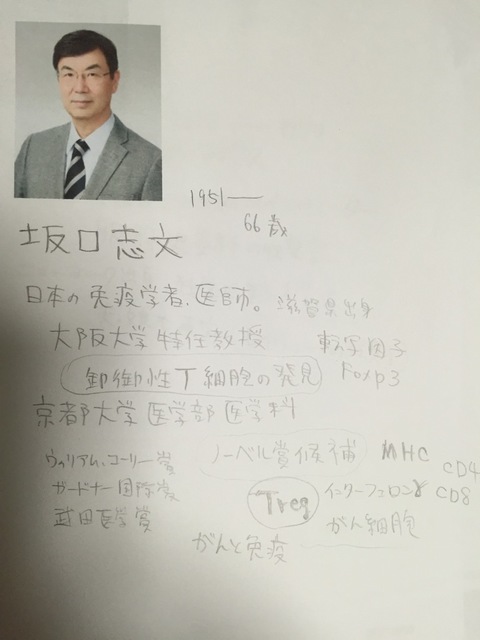 1951―
66歳
坂口志文
日本の免疫学者、医師。滋賀県出身
大阪大学特任教授
転写因子
制御性T細胞の発見
Foxp3
京都大学医学部医学科
ウィリアム・コーリー賞
ノーベル賞候補
MHC
CD4
ガードナー国際賞
Treg
インターフェロンγ
CD8
武田医学賞
がん細胞
がんと免疫